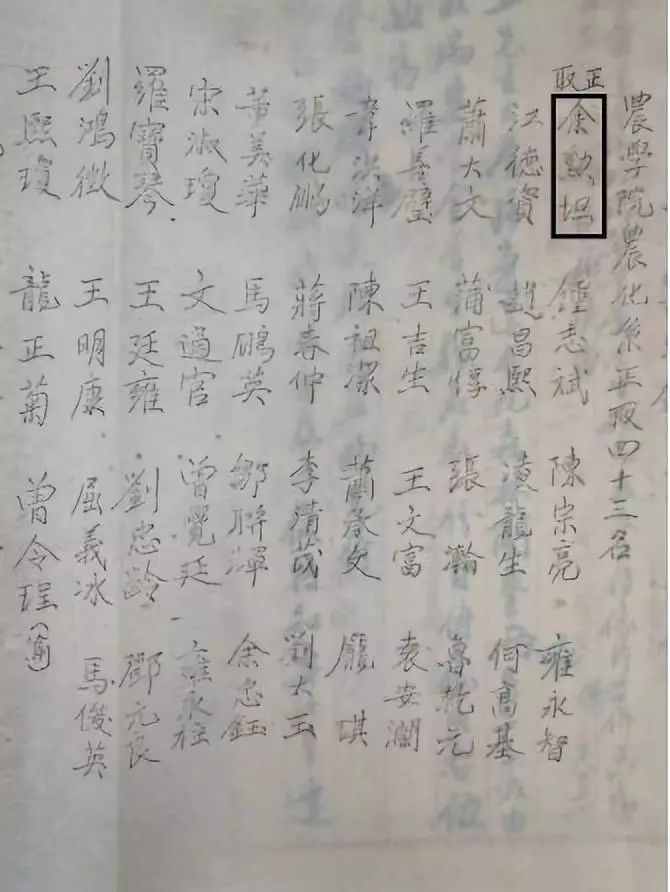 農學院農化系正取四十三名
正取
余坦 鍾志斌 陳宗亮 雍永智
江德資 趙昌熙 凌龍生 何高基
蕭大文 蒲富惇 張瀚 魯乾元
羅義璧 王吉生 王文富 袁安瀾
韋洋 陳祖潔 蕭承文 龐琪
張化鵬 蔣春仲 李清茂 劉大玉
美華 馬鵬英 鄒聯渾 余忠鈺
宋淑瓊 文通官 曾覺廷 雍永桂
羅寶琴 王廷雍 劉忠齡 鄧元良
劉鴻徵 王明康 屈義冰 馬俊英
王熙瓊 龍正菊 曾令珵